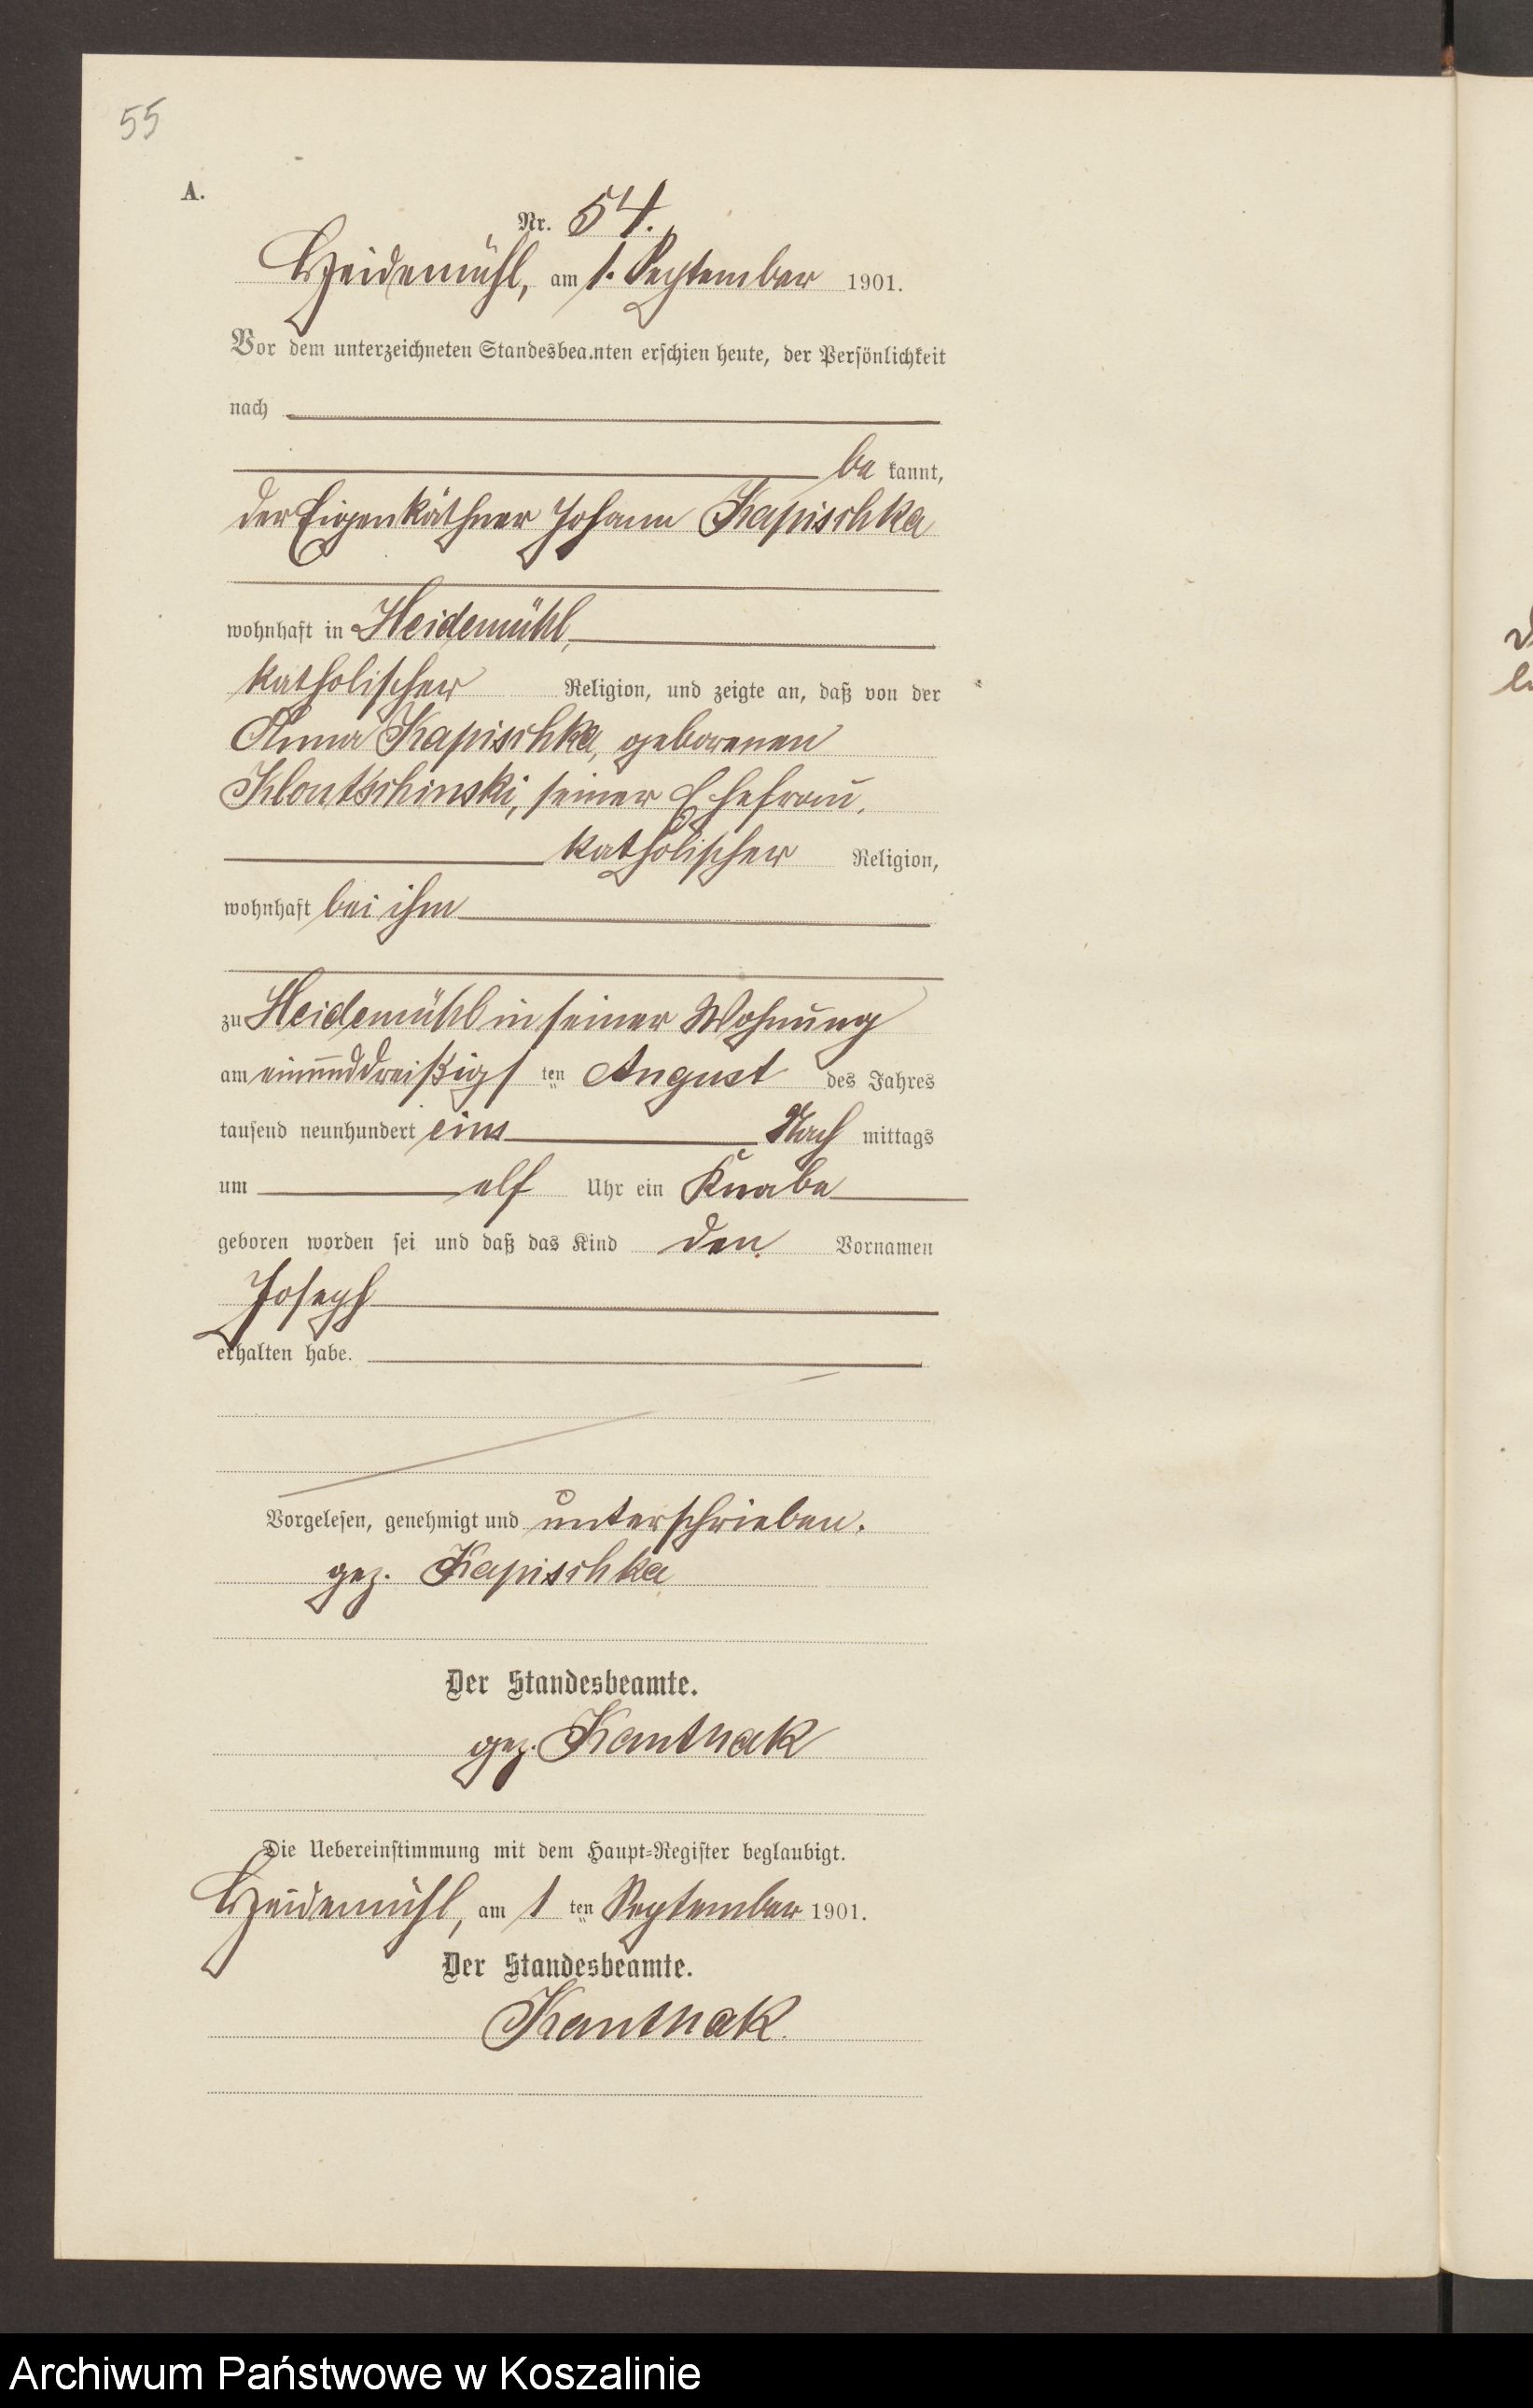 55
A.
Nr. 54.
Heidemühl, am 1. September 1901.
Vor dem unterzeichneten Standesbeamten erschien heute, der Persönlichkeit
nach
be kannt,
der Eigenkäthner Johann Kapischka
wohnhaft in Heidemühl,
katholischer Religion, und zeigte an, daß von der
Anna Kapischka, geborenen
Klontschinski, seiner Ehefrau,
katholischer Religion,
wohnhaft bei ihm
zu Heidemühl in seiner Wohnung
am einunddreißigs ten August des Jahres
tausend neunhundert eins Nach mittags
um elf Uhr ein Knabe
geboren worden sei und daß das Kind den Vornamen
Joseph
erhalten habe.
Vorgelesen, genehmigt und unterschrieben.
gez. Kapischka
Der Standesbeamte.
gez. Kantnak
Die Uebereinstimmung mit dem Haupt-Register beglaubigt.
Heidemühl, am 1 ten September 1901.
Der Standesbeamte.
Kantnak.
Archiwum Państwowe w Koszalinie